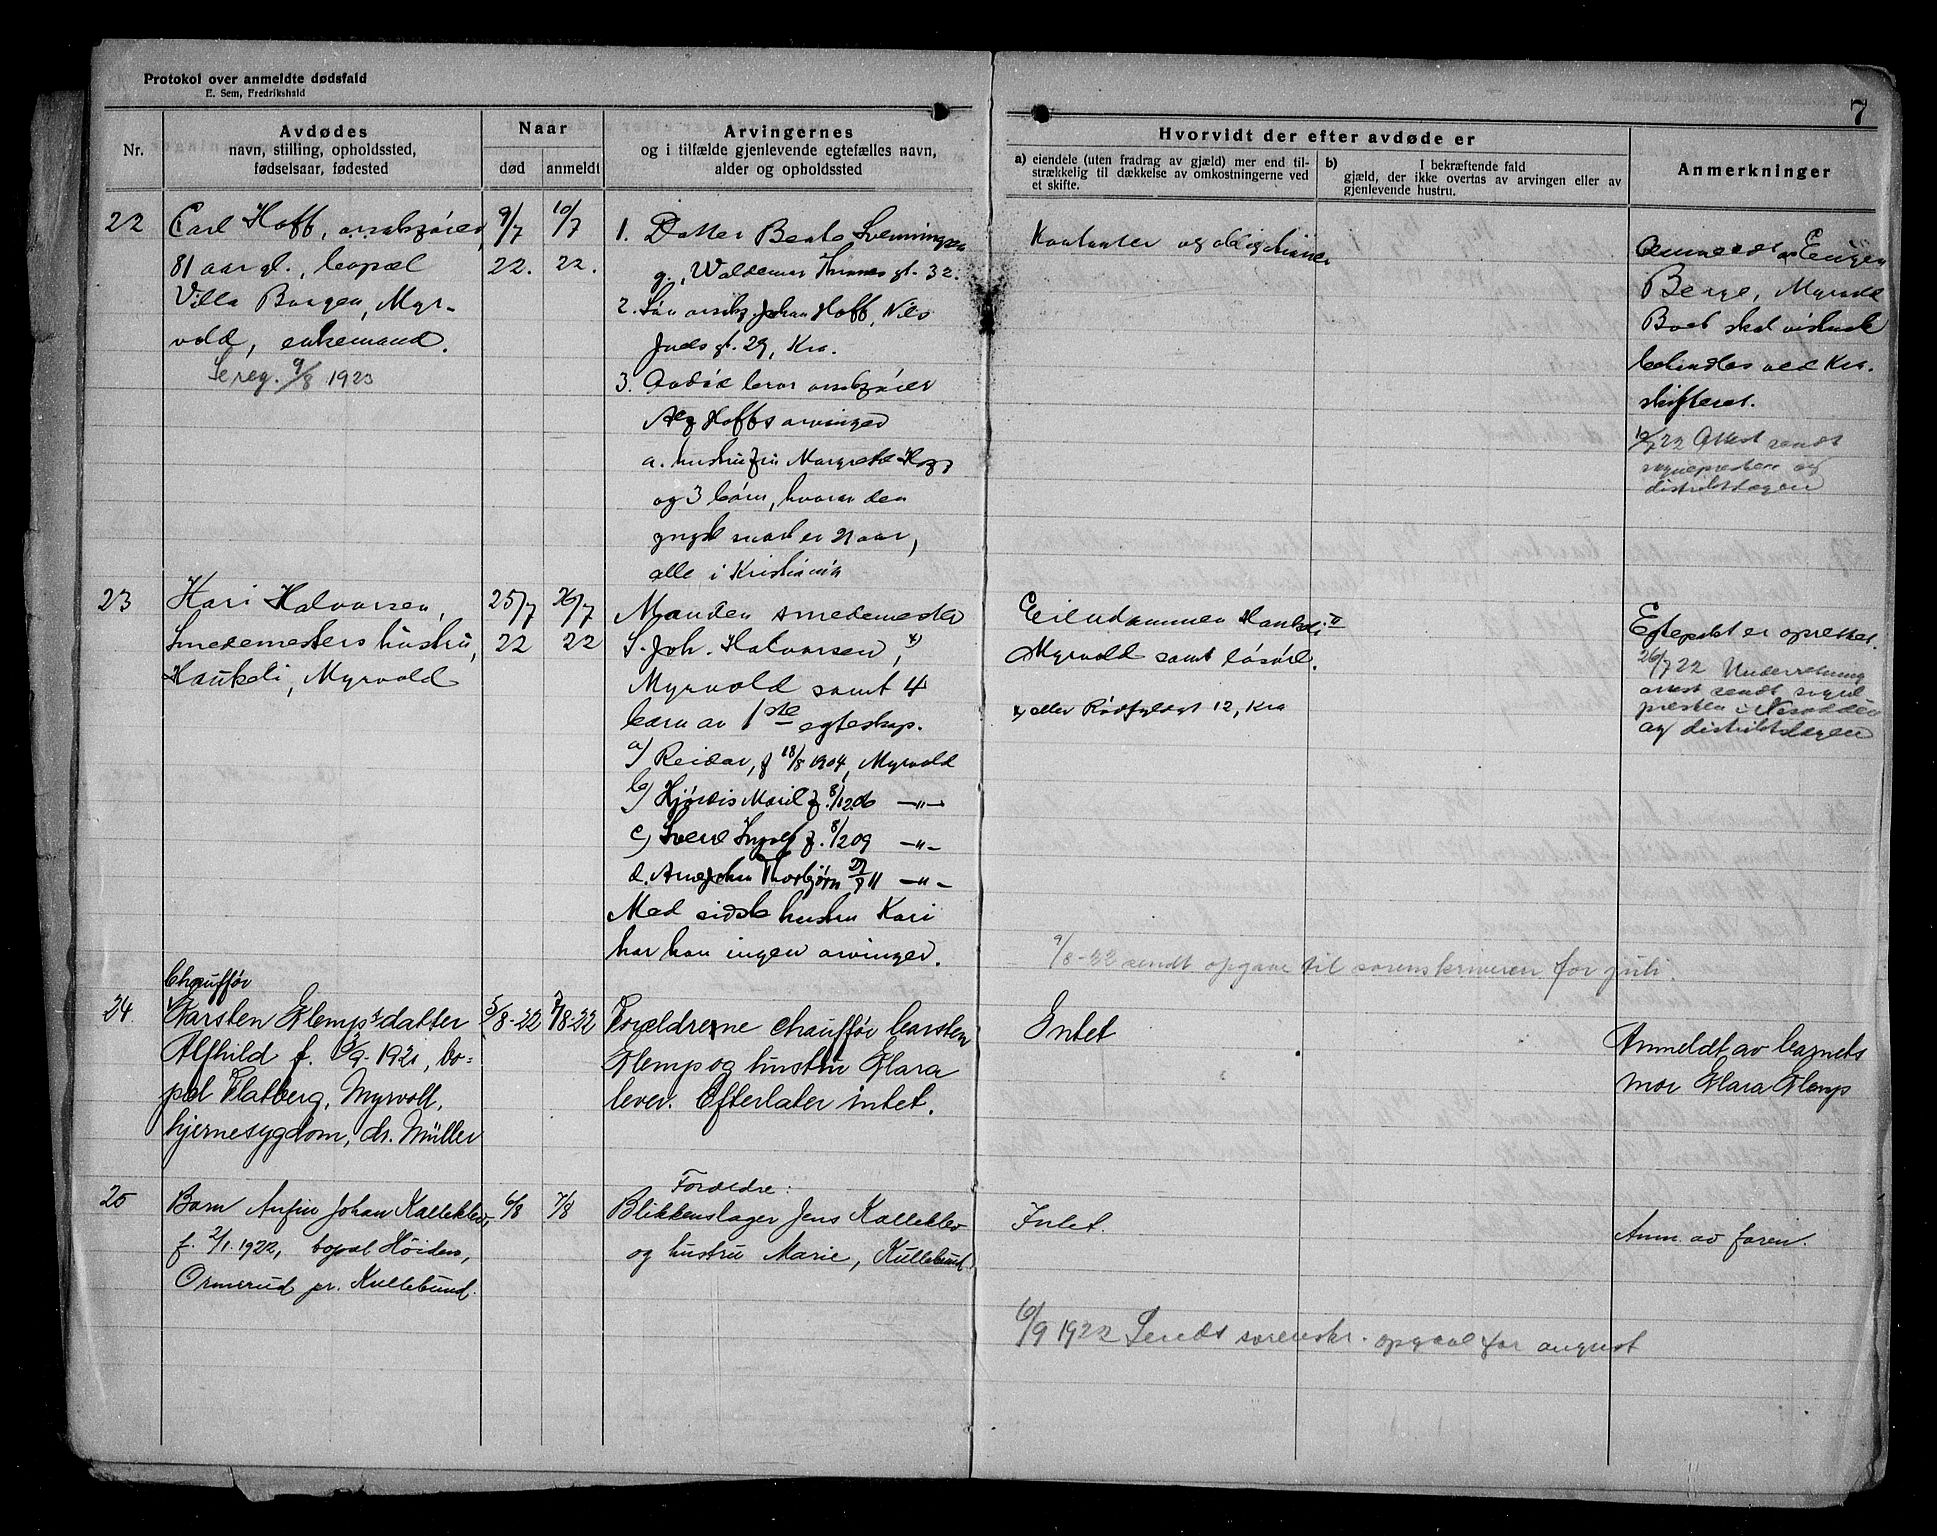 Protokol over anmeldte dødsfald
E. Sem, Fredrikshald
7
Nr.
Avdødes
navn, stilling, opholdssted,
fødselsaar, fødested
Naar
død
anmeldt
Arvingernes
og i tilfælde gjenlevende egtefælles navn,
alder og opholdssted
Hvorvidt der efter avdøde er
a) eiendele (uten fradrag av gjæld) mer end til-
strækkelig til dækkelse av omkostningerne ved
et skifte.
b) I bekræftende fald
gjæld, der ikke overtas av arvingen eller av
gjenlevende hustru.
Anmerkninger
22
Carl Hoff, orsakfører,
81 aar gl., bopæl
Villa Borgen, Myr-
vold, enkemand.
9/8 1923
9/7
22.
10/7
22.
1. Datter Beate Svenningsen
g., Waldemar Thranes gt. 32.
2. Søn orsakf. Johan Hoff, Nils
Juels gt. 29, Kra.
3. Avdøde bror orsakfører
Hoffs arvinger
a. hustru fru Margrethe
og 3 børn, hvorav den
yngste snart er 21 aar,
alle i Kristiania
Kontanter og obligationer
Anmeldt av
Berge, Myrvold
Boet skal
behandles ved Kra.
skifteret.
10/7 22 Attest sendt
sognepresten og
distriktslægen
23
Kari Halvorsen,
Smedemesters hustru,
Haukeli, Myrvold
25/7
22
26/7
22
Manden smedemester
S. Joh. Halvorsen, x)
Myrvold samt 4
børn av 1ste egteskap.
a) Reidar, f 18/8 1904, Myrvold
b) Hjørdis f. 8/12 06 —"—
c) f. 8/2 09 —"—
d. Arne Johan Thorbjørn 11 —"—
Med sidste hustru Kari
har han ingen arvinger.
Eiendommen Haukeli
Myrvold samt løsøre.
x) eller Rødfyldgt 12, Kra
Egtepakt er oprettet.
26/7 22 Underretning
attest sendt sogne-
presten i Nesodden
og distriktslægen
9/8-22 sendt opgave til sorenskriveren for juli.
24.
Chauffør
Karsten Klemps datter
Alfhild f. 1921, bo-
pæl Flatberg, Myrvoll,
hjernesygdom, dr. Müller
5/8-22
7/8-22
Forældrene chauffør Carsten
Klemp og hustru Klara
lever. Efterlater intet.
Intet
Anmeldt av barnets
mor Klara Klemp
25
Barn Arfin Johan Kalleklev
f. 2/1. 1922, bopæl Høiden,
Ormerud pr. Kullebund.
6/8
7/8
Forældre:
Blikkenslager Jens Kalleklev
og hustru Marie, Kullebund
Intet.
Anm. av faren.
6/9 1922 Sendt sorenskr. opgave for august